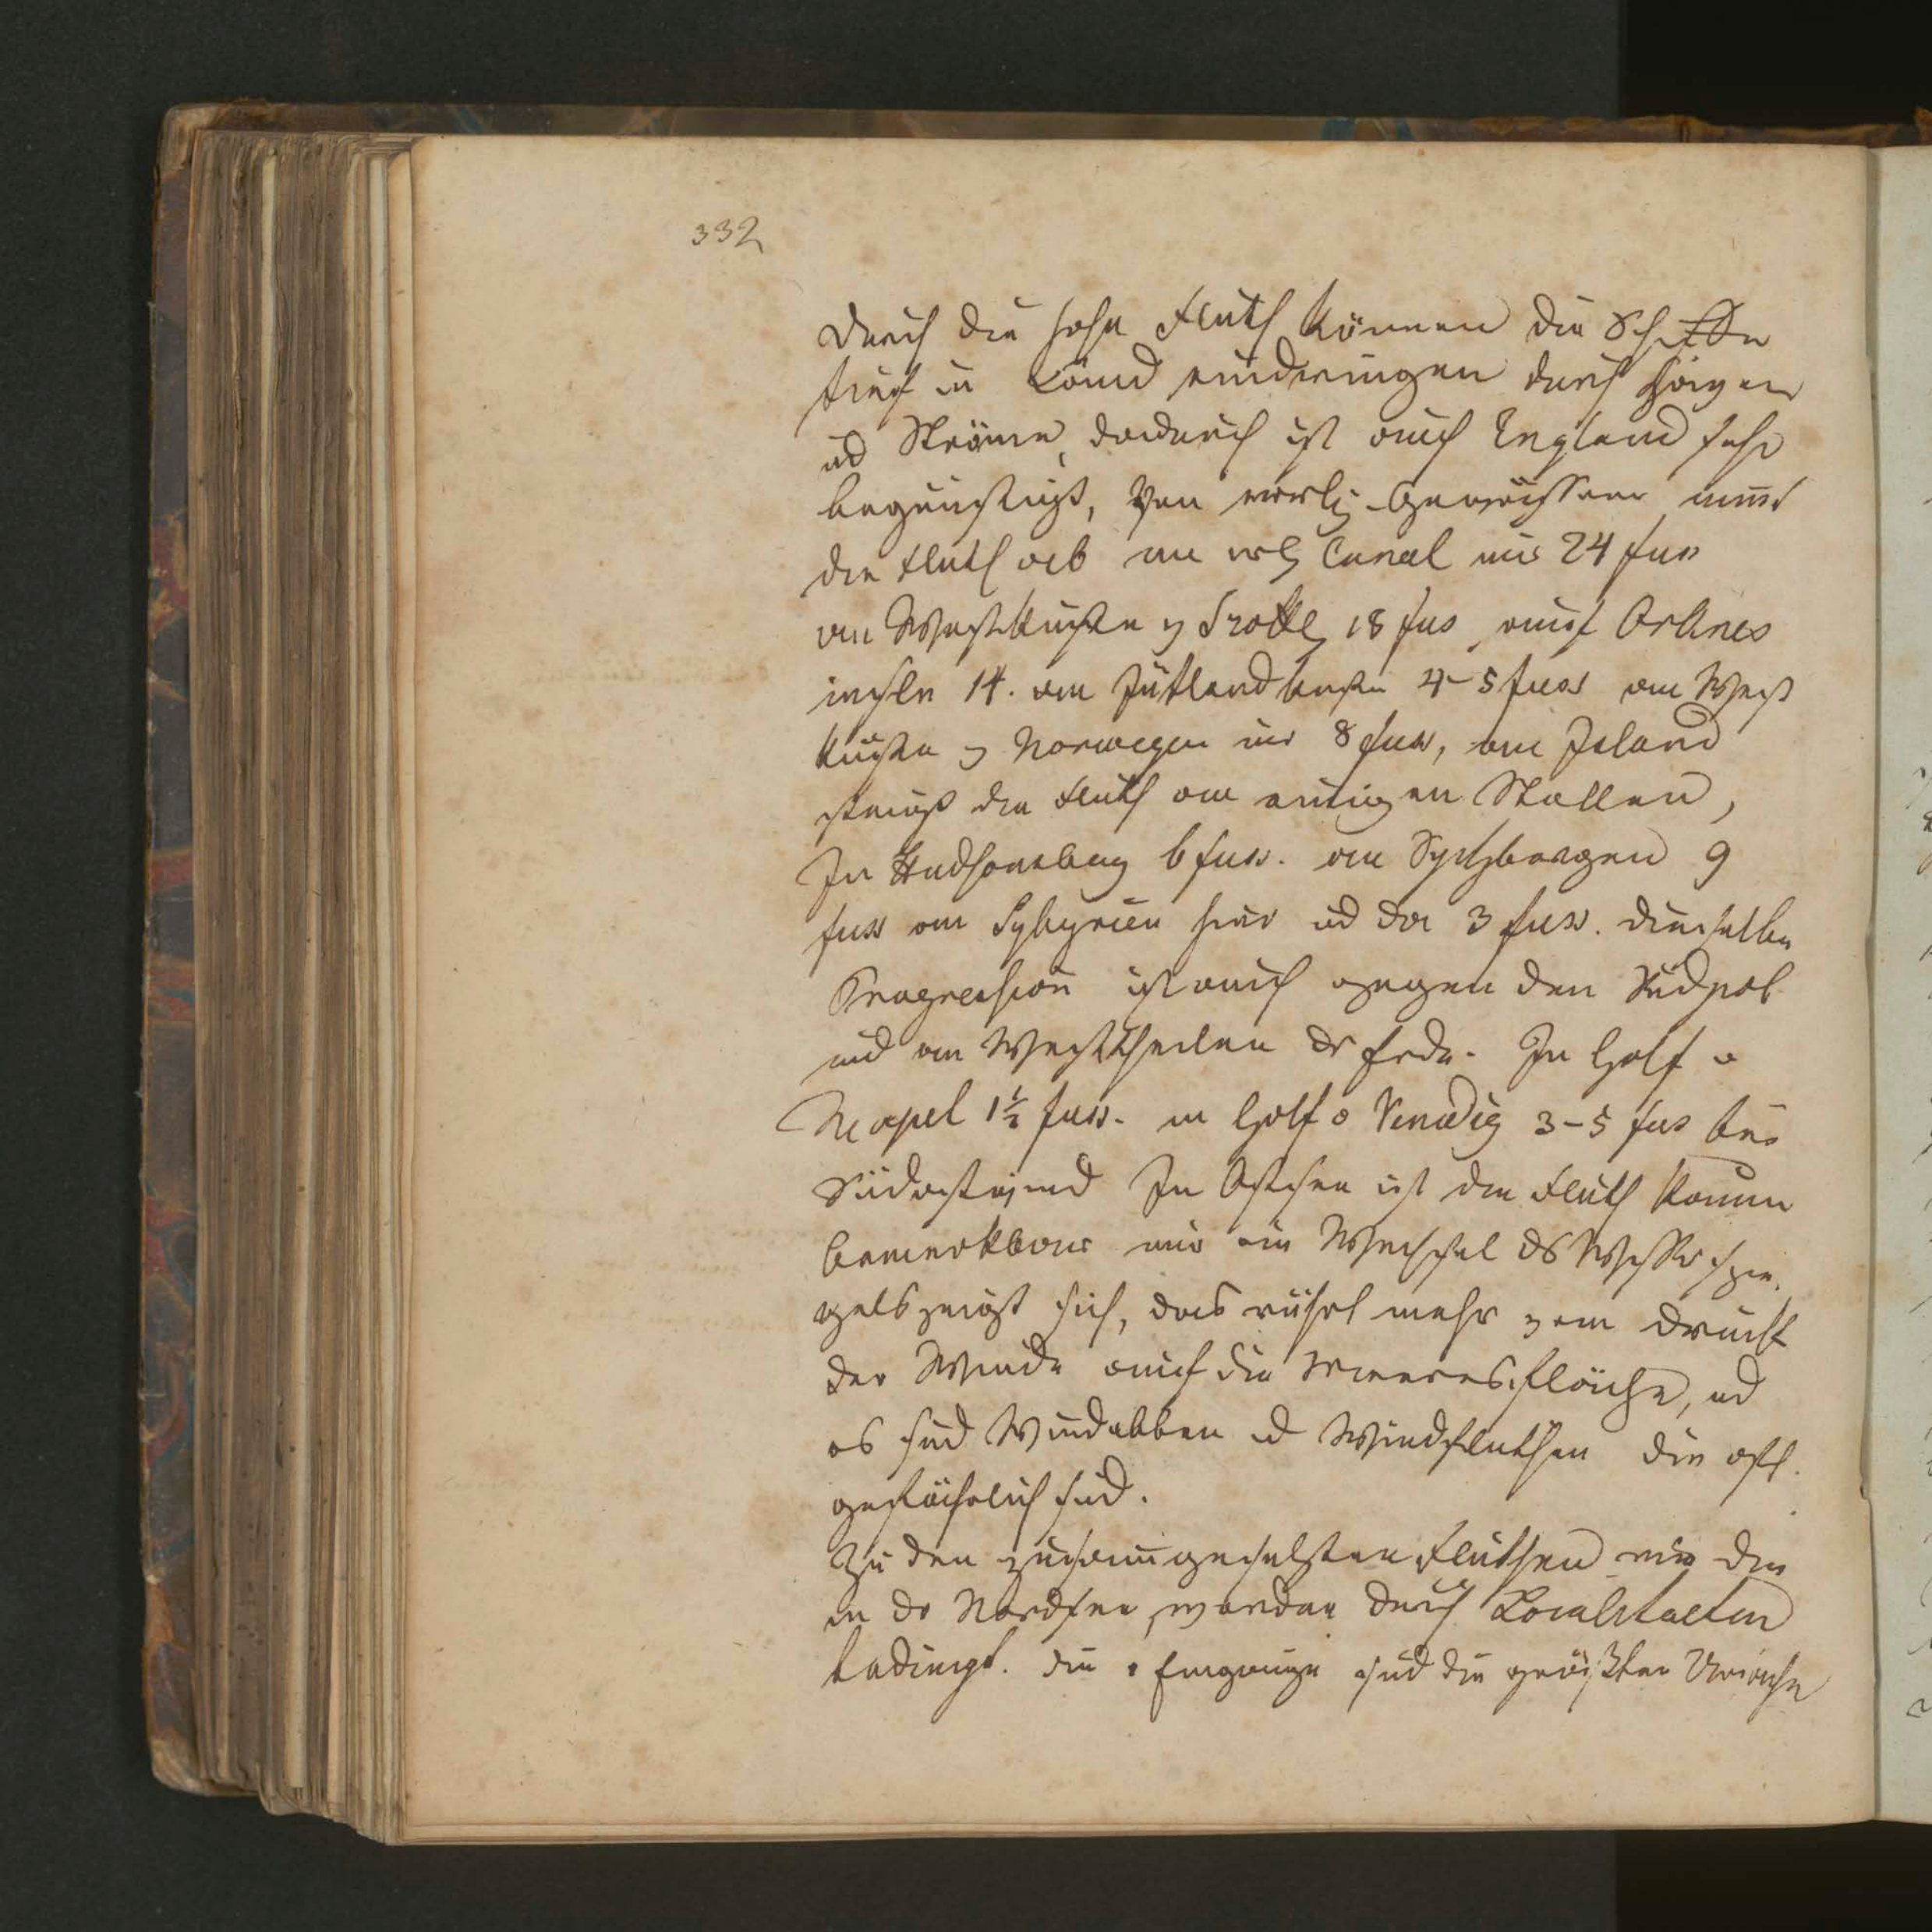 332
Durch die hohe Fluth können die Schiffe
tief in Land eindringen durch Häfen
ud Ströme, dadurch ist auch England sehr
begünstigt, Von engl. Gewässern nimt
die Fluth ab im engl Canal nur 24 fuss
an Westküste v Schottl 18 fus, auf Orknes
inseln 14. an Jütlandküste 4-5 fuss an West
küste v Norwegen nur 8 fuss, an Island
steigt die Fluth an einigen Stellen,
In Hudsonsbay 6 fuss. an Spitzbergen 9
fuss an Sybyrien hier ud da 3 fuss. dieselbe
Progression ist auch gegen den Südpol
und an Westtheilen dr Erde. In Golf v
Neapel 1½ fuss. in Golf v Venedig 3-5 fus bei
Südostwind In Ostsee ist die Fluth kaum
bemerkbar nur ein Wechsel ds Wasserspie
gels zeigt sich, das rührt mehr vom Druck
der Winde auf die Meeresfläche, ud
es sind Windebben ud Windfluthen die oft
gefährlich sind.
Zu den zusamgesetzten Fluthen wie die
in dr Nordsee, werden durch Localitaeten
bedingt. die Eingänge sind die größten Ursache